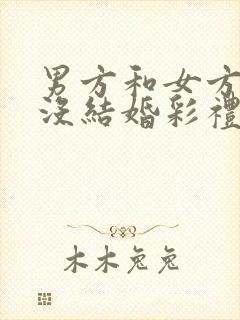 男方和女方
沒結婚彩禮
木木兔兔